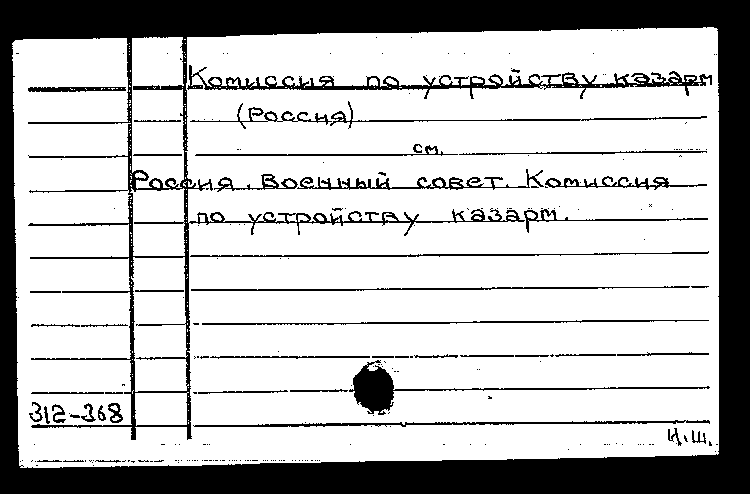 Комиссия по устройству казарм
(Россия)
см.
Россия. Военный совет. Комиссия
по устройству казарм.
312-368
Н.Ш.